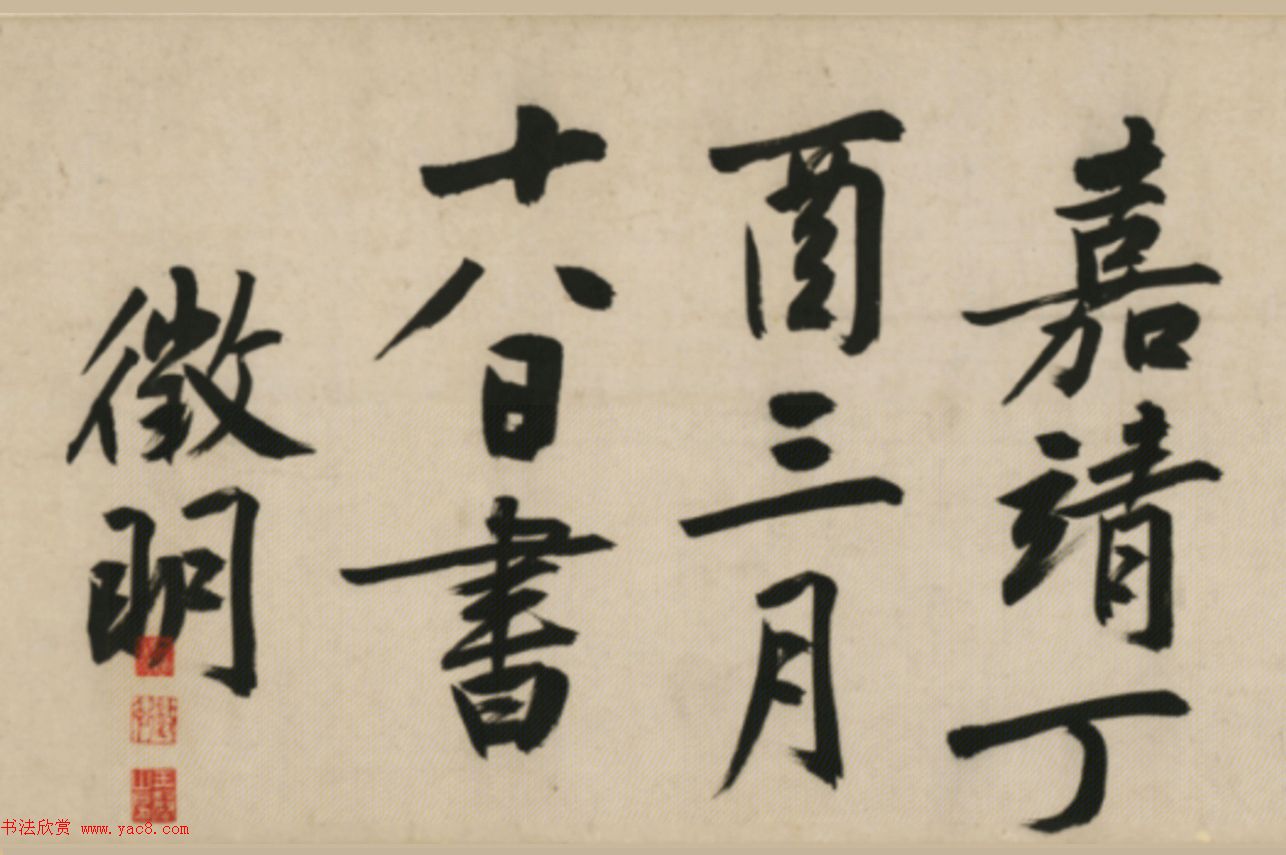 嘉靖丁
酉三月
十八日書
徵明
书法欣赏 www.yac8.com